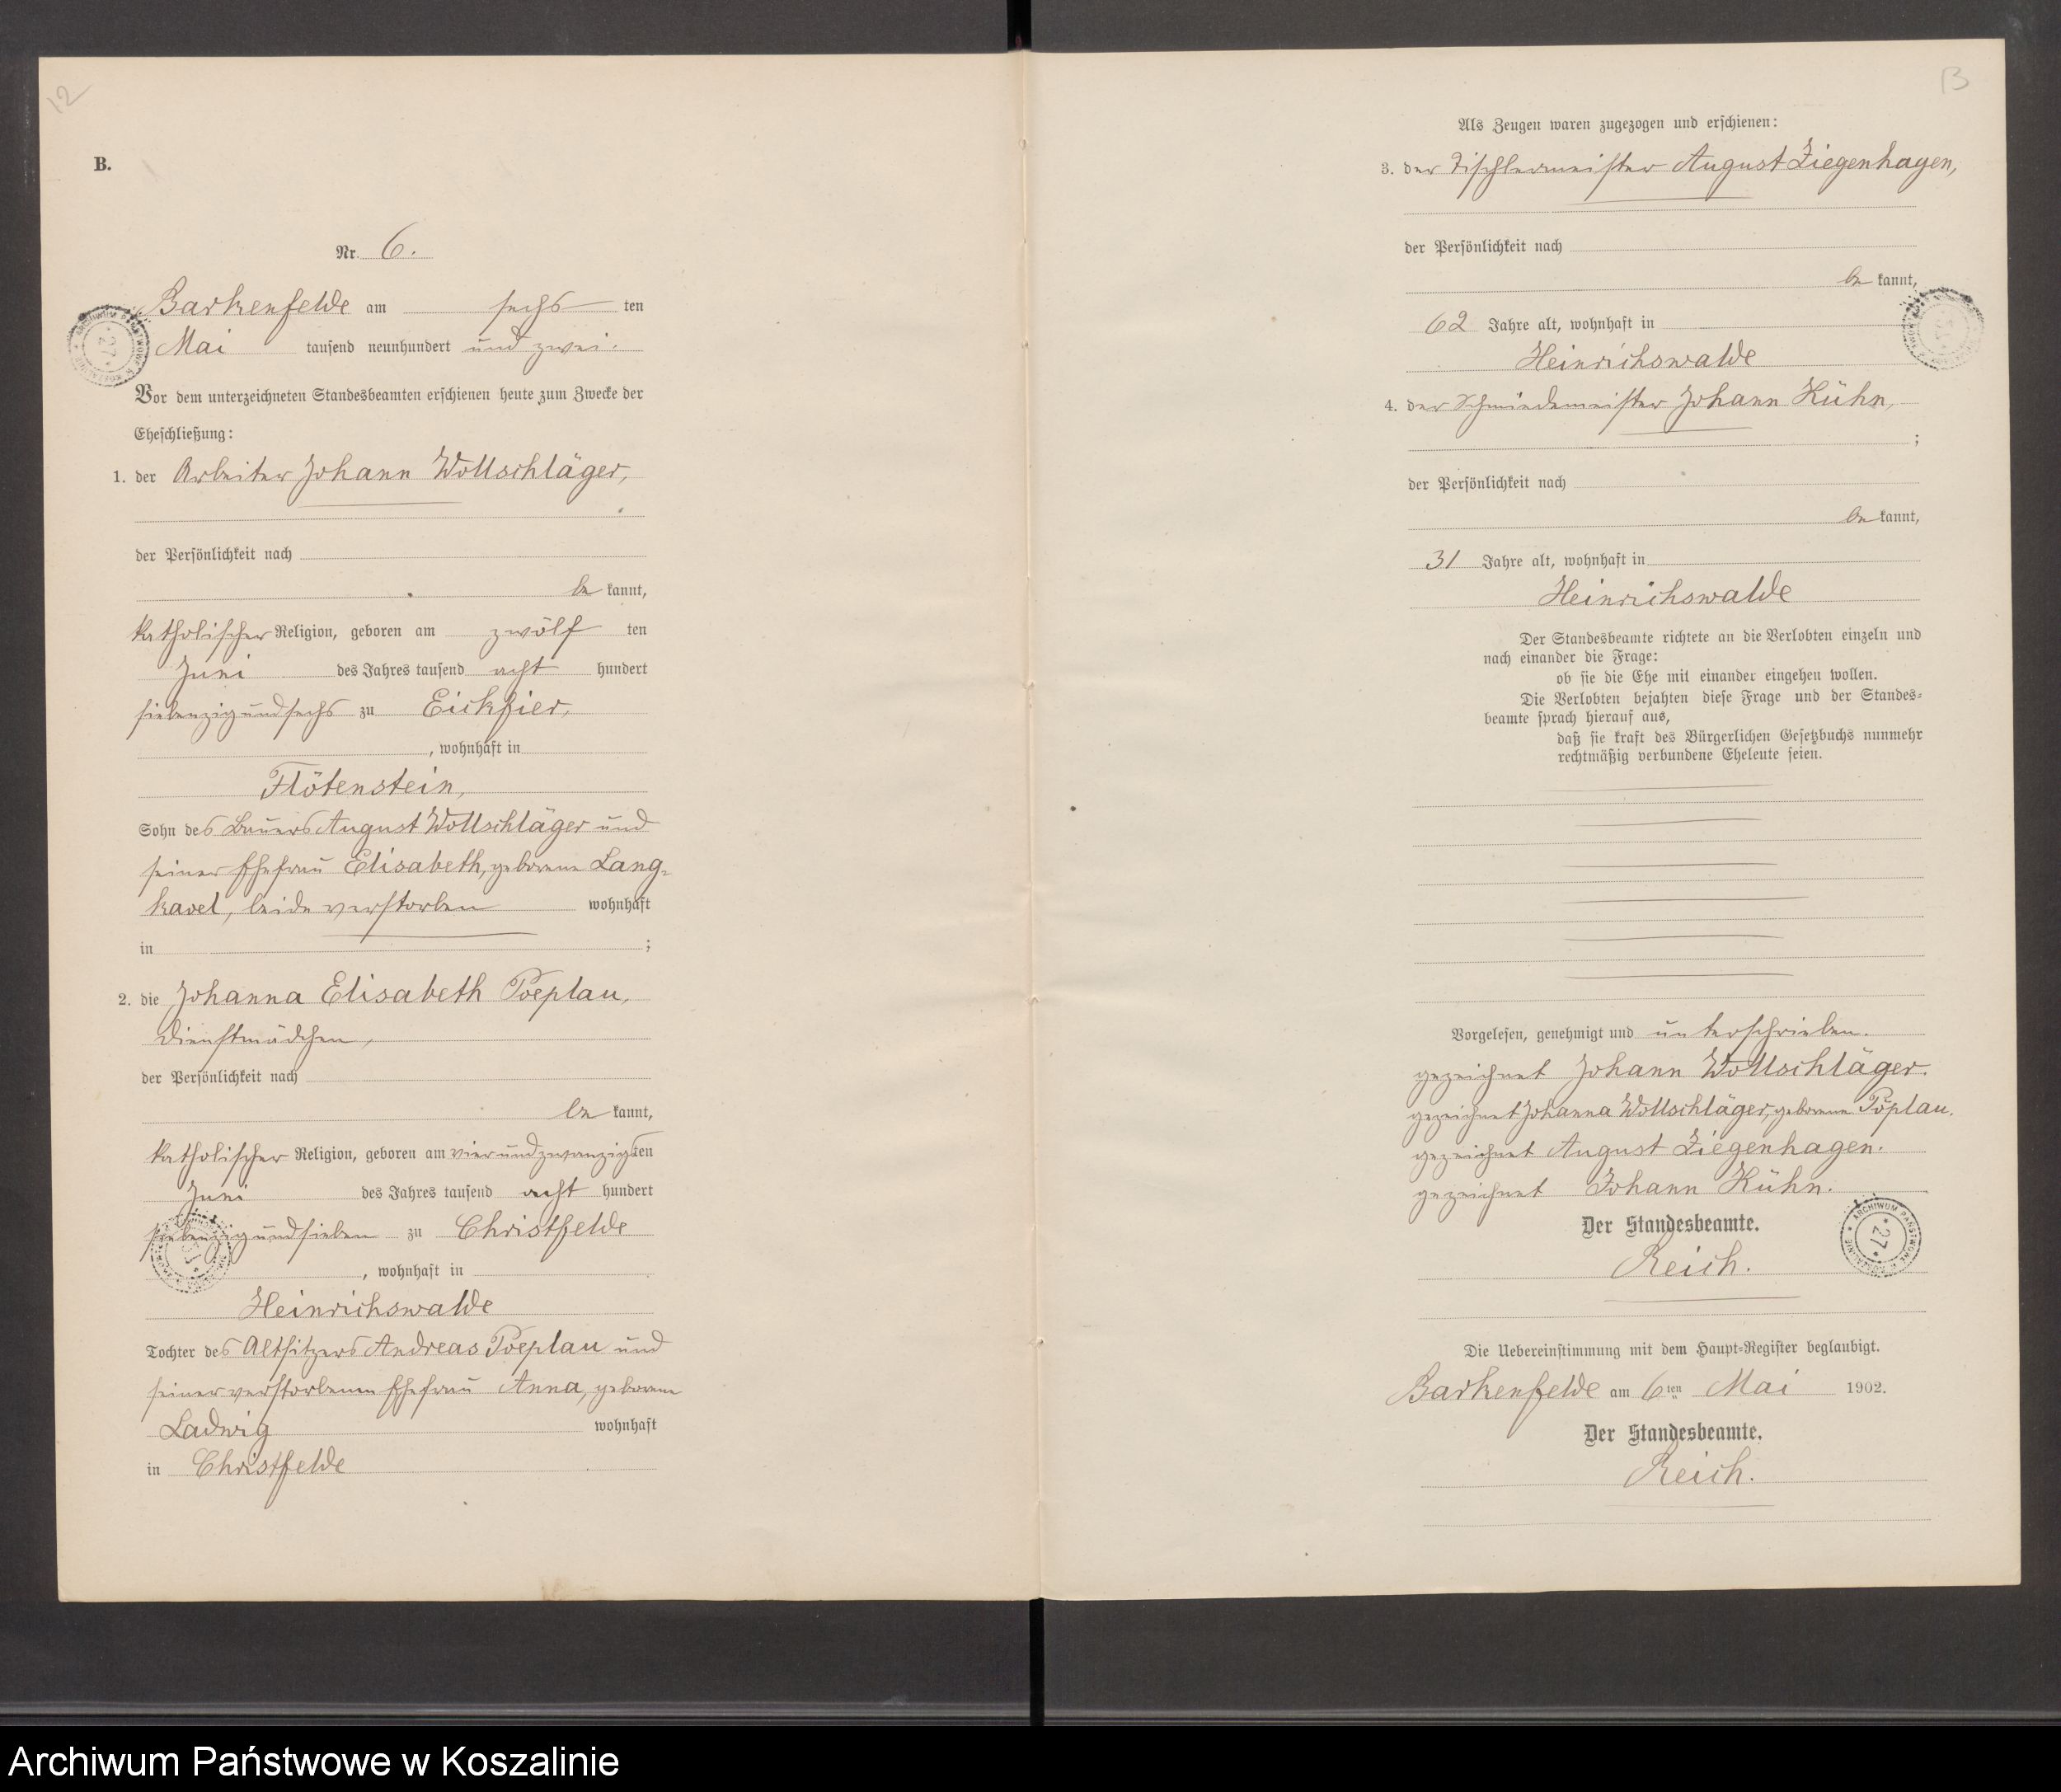 12
B.
Nr. 6.
Barkenfelde am sechs ten
Mai tausend neunhundert und zwei.
Vor dem unterzeichneten Standesbeamten erschienen heute zum Zwecke der
Eheschließung:
1. der Arbeiter Johann Wollschläger,
der Persönlichkeit nach
be kannt,
katholischer Religion, geboren am zwölf ten
Juni des Jahres tausend acht hundert
siebenzig und sechs zu Eickfier,
, wohnhaft in
Flötenstein,
Sohn des Bauers August Wollschläger und
seiner Ehefrau Elisabeth, geborene Lang-
kavel, beide verstorben wohnhaft
in ;
2. die Johanna Elisabeth Poeplau,
Dienstmädchen,
der Persönlichkeit nach
be kannt,
katholischer Religion, geboren am vierundzwanzigsten
Juni des Jahres tausend acht hundert
siebenzig und sieben zu Christfelde
, wohnhaft in
Heinrichswalde
Tochter des Altsitzers Andreas Poeplau und
seiner verstorbenen Ehefrau Anna, geborene
Ladwig wohnhaft
in Christfelde
13
Als Zeugen waren zugezogen und erschienen:
3. der Tischlermeister August Ziegenhagen,
der Persönlichkeit nach
be kannt,
62 Jahre alt, wohnhaft in
Heinrichswalde
4. der Schmiedemeister Johann Kühn,
;
der Persönlichkeit nach
be kannt,
31 Jahre alt, wohnhaft in
Heinrichswalde
Der Standesbeamte richtete an die Verlobten einzeln und
nach einander die Frage:
ob sie die Ehe mit einander eingehen wollen.
Die Verlobten bejahten diese Frage und der Standes-
beamte sprach hierauf aus,
daß sie kraft des Bürgerlichen Gesetzbuchs nunmehr
rechtmäßig verbundene Eheleute seien.
Vorgelesen, genehmigt und unterschrieben.
gezeichnet Johann Wollschläger.
gezeichnet Johanna Wollschläger, geborene Pöplau.
gezeichnet August Ziegenhagen.
gezeichnet Johann Kühn.
Der Standesbeamte.
Reich.
ARCHIWUM PAŃSTWOWE W KOSZALINIE * 27 *
Die Uebereinstimmung mit dem Haupt-Register beglaubigt.
Barkenfelde am 6ten Mai 1902.
Der Standesbeamte.
Reich.
Archiwum Państwowe w Koszalinie